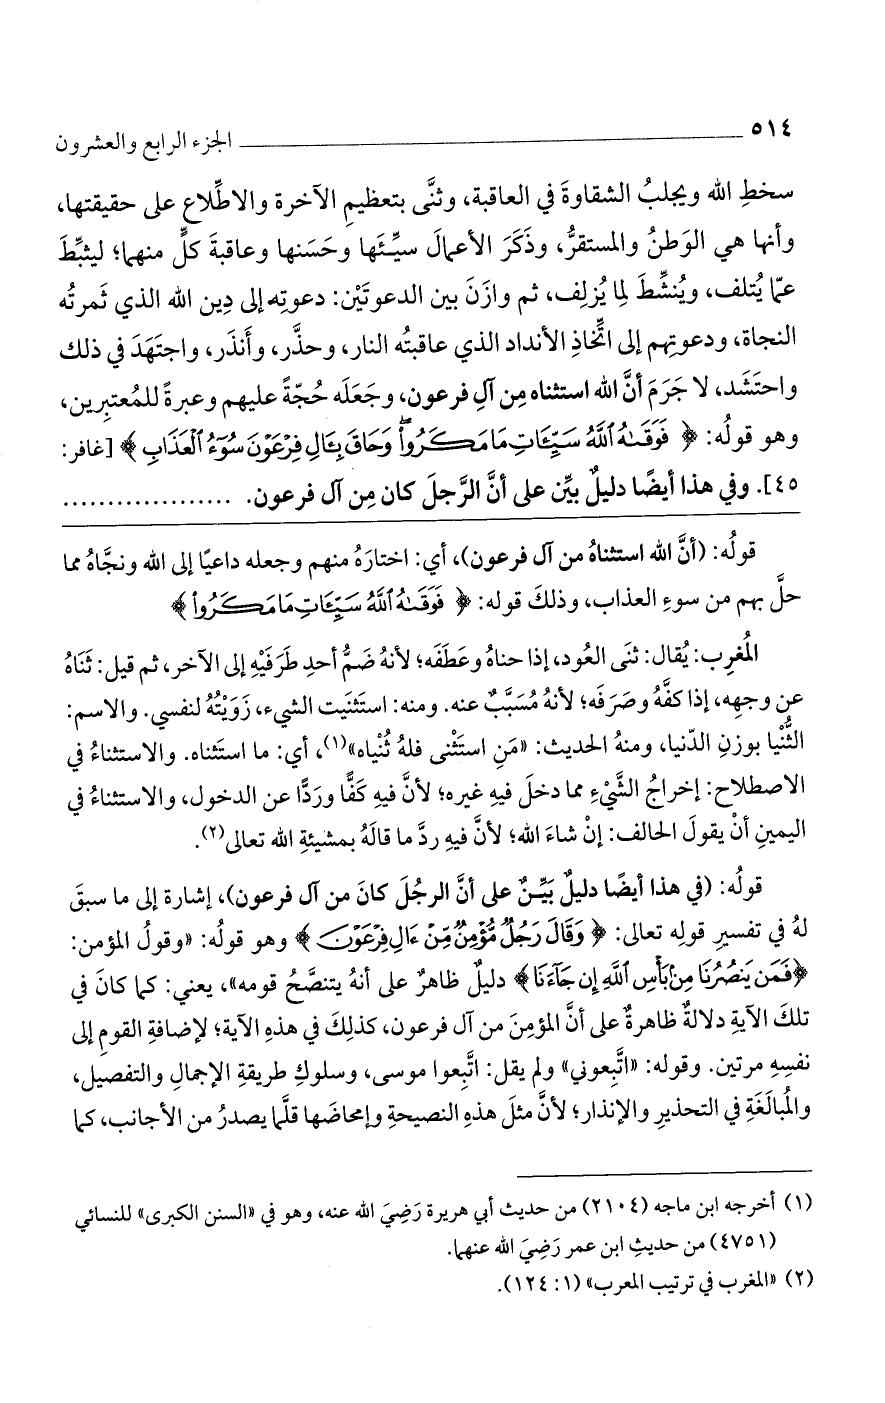 ٥١٤ ــــــــــــــــــــــــــــــــــــــــــــــــــــ الجزء الرابع والعشرون
سخطِ الله ويجلبُ الشقاوةَ في العاقبة، وثنَّى بتعظيمِ الآخرة والاطِّلاعِ على حقيقتها،
وأنها هي الوَطنُ والمستقرُّ، وذَكَرَ الأعمالَ سيِّئَها وحَسَنها وعاقبةَ كلٍّ منهما؛ ليثبِّطَ
عمّا يُتلف، ويُنشِّطَ لِما يُزلِف، ثم وازَنَ بين الدعوتَيْن: دعوتِه إلى دِين الله الذي ثَمرتُه
النجاة، ودعوتِهم إلى اتِّخاذِ الأنداد الذي عاقبتُه النار، وحذَّر، وأَنذَر، واجتَهَدَ في ذلك
واحتَشَد، لا جَرَمَ أنَّ الله استثناه مِن آلِ فرعون، وجَعَلَه حُجّةً عليهم وعبرةً للمُعتبِرين،
وهو قولُه: ﴿ فَوَقَىٰهُ ٱللَّهُ سَيِّـَٔاتِ مَا مَكَرُوا۟ ۖ وَحَاقَ بِـَٔالِ فِرْعَوْنَ سُوٓءُ ٱلْعَذَابِ ﴾ [غافر:
٤٥]. وفي هذا أيضًا دليلٌ بيِّن على أنَّ الرَّجلَ كان مِن آل فرعون. ....................
قولُه: (أنَّ الله استثناهُ من آل فرعون)، أي: اختارَهُ منهم وجعله داعيًا إلى الله ونجَّاهُ مما
حلَّ بهم من سوءِ العذاب، وذلكَ قوله: ﴿ فَوَقَىٰهُ ٱللَّهُ سَيِّـَٔاتِ مَا مَكَرُوا۟ ﴾
المُغرِب: يُقال: ثنَى العُود، إذا حناهُ وعَطَفَه؛ لأنهُ ضَمُّ أحدِ طَرَفَيْهِ إلى الآخر، ثم قيل: ثَنَاهُ
عن وجهِه، إذا كفَّهُ وصَرَفَه؛ لأنهُ مُسَبَّبٌ عنه. ومنه: استَثنَيت الشيء، زَوَيْتُهُ لنفسي. والاسم:
الثُّنْيا بوزنِ الدّنيا، ومنهُ الحديث: «مَنِ استَثْنى فلهُ ثُنْياه»(١)، أي: ما استَثناه. والاستثناءُ في
الاصطلاح: إخراجُ الشَّيْءِ مما دخلَ فيهِ غيره؛ لأنَّ فيهِ كفًّا وردًّا عن الدخول، والاستثناءُ في
اليمينِ أنْ يقولَ الحالف: إنْ شاءَ الله؛ لأنَّ فيهِ ردَّ ما قالَهُ بمشيئةِ الله تعالى(٢).
قولُه: (في هذا أيضًا دليلٌ بيَّنٌ على أنَّ الرجُلَ كانَ من آل فرعون)، إشارة إلى ما سبقَ
لهُ في تفسيرِ قولِه تعالى: ﴿ وَقَالَ رَجُلٌ مُّؤْمِنٌ مِّنْ ءَالِ فِرْعَوْنَ ﴾ وهو قولُه: «وقولُ المؤمن:
﴿فَمَن يَنصُرُنَا مِنۢ بَأْسِ ٱللَّهِ إِن جَآءَنَا﴾ دليلٌ ظاهرٌ على أنهُ يتنصَّحُ قومه»، يعني: كما كانَ في
تلكَ الآيةِ دلالةٌ ظاهرةٌ على أنَّ المؤمِنَ من آل فرعون، كذلِكَ في هذهِ الآية؛ لإضافةِ القومِ إلى
نفسِهِ مرتين. وقوله: «اتَّبِعوني» ولم يقل: اتَّبِعوا موسى، وسلوكِ طريقةِ الإجمالِ والتفصيل،
والمُبالَغَةِ في التحذيرِ والإنذار؛ لأنَّ مثلَ هذهِ النصيحةِ وإمحاضَها قلَّما يصدرُ من الأجانب، كما
(١) أخرجه ابن ماجه (٢١٠٤) من حديث أبي هريرة رَضِيَ الله عنه، وهو في «السنن الكبرى» للنسائي
(٤٧٥١) من حديثِ ابن عمر رَضِيَ الله عنهما.
(٢) «المغرب في ترتيب المعرب» (١: ١٢٤).